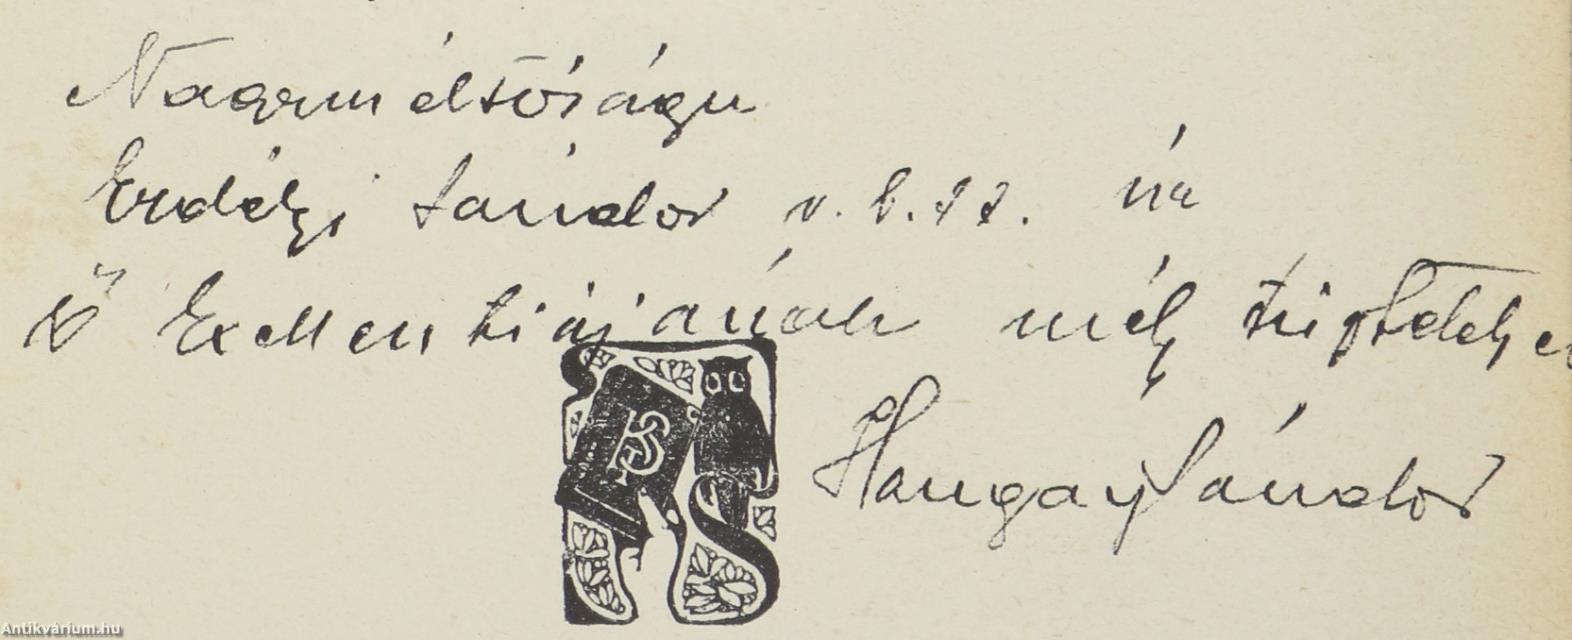 Nagyméltóságu
Erdélyi Sándor v.b.tt. úr
Ő Excellentiájának mély tisztelet
Hangay Sándor
Antikvárium.hu